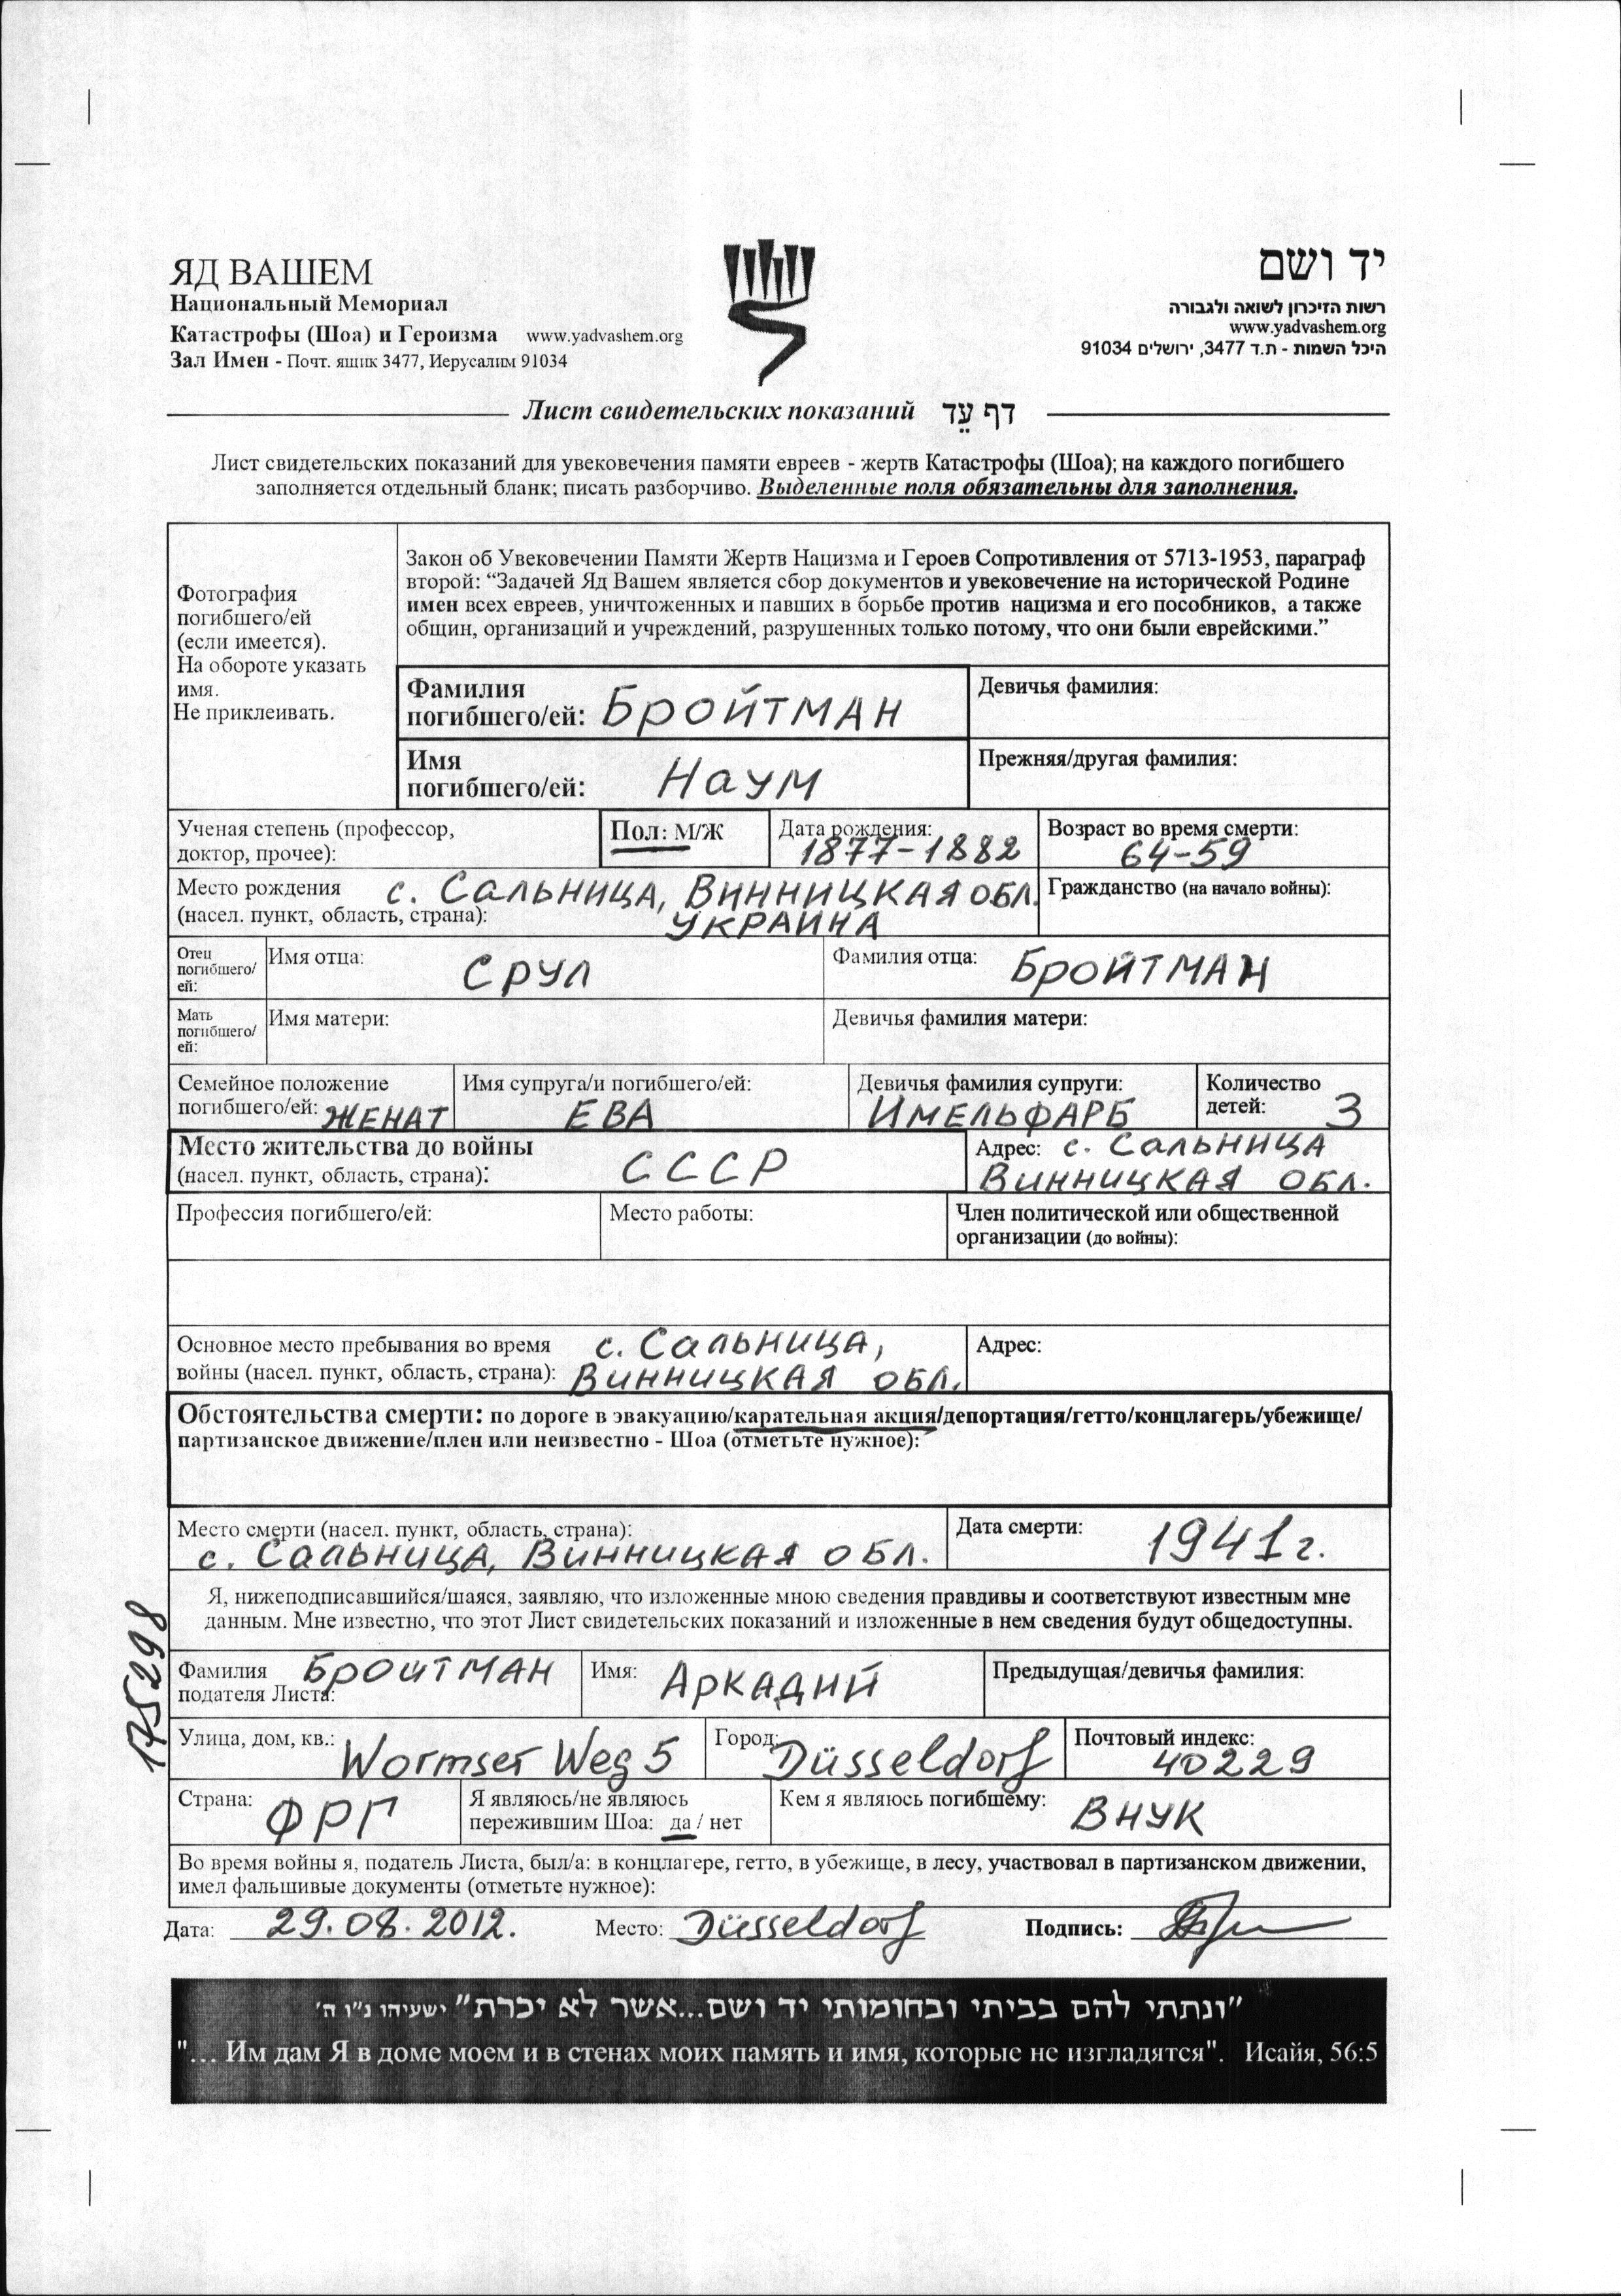 ЯД ВАШЕМ
Национальный Мемориал
Катастрофы (Шоа) и Героизма www.yadvashem.org
Зал Имен - Почт. ящик 3477, Иерусалим 91034
יד ושם
רשות הזיכרון לשואה ולגבורה
www.yadvashem.org
היכל השמות - ת.ד 3477, ירושלים 91034
Лист свидетельских показаний דף עֵד
Лист свидетельских показаний для увековечения памяти евреев - жертв Катастрофы (Шоа); на каждого погибшего
заполняется отдельный бланк; писать разборчиво. Выделенные поля обязательны для заполнения.
Фотография
погибшего/ей
(если имеется).
На обороте указать
имя.
Не приклеивать.
Закон об Увековечении Памяти Жертв Нацизма и Героев Сопротивления от 5713-1953, параграф
второй: “Задачей Яд Вашем является сбор документов и увековечение на исторической Родине
имен всех евреев, уничтоженных и павших в борьбе против нацизма и его пособников, а также
общин, организаций и учреждений, разрушенных только потому, что они были еврейскими.”
Фамилия
погибшего/ей: БРОЙТМАН
Девичья фамилия:
Имя
погибшего/ей: Наум
Прежняя/другая фамилия:
Ученая степень (профессор,
доктор, прочее):
Пол: М/Ж
Дата рождения:
1877-1882
Возраст во время смерти:
64-59
Место рождения с. Сальница, Винницкая обл.
(насел. пункт, область, страна): УКРАИНА
Гражданство (на начало войны):
Отец
погибшего/
ей:
Имя отца: Срул
Фамилия отца: Бройтман
Мать
погибшего/
ей:
Имя матери:
Девичья фамилия матери:
Семейное положение
погибшего/ей: ЖЕНАТ
Имя супруга/и погибшего/ей:
ЕВА
Девичья фамилия супруги:
ИМЕЛЬФАРБ
Количество
детей: 3
Место жительства до войны
(насел. пункт, область, страна): СССР
Адрес: с. Сальница
Винницкая обл.
Профессия погибшего/ей:
Место работы:
Член политической или общественной
организации (до войны):
Основное место пребывания во время с. Сальница,
войны (насел. пункт, область, страна): Винницкая обл.
Адрес:
Обстоятельства смерти: по дороге в эвакуацию/карательная акция/депортация/гетто/концлагерь/убежище/
партизанское движение/плен или неизвестно - Шоа (отметьте нужное):
Место смерти (насел. пункт, область, страна):
с. Сальница, Винницкая обл.
Дата смерти: 1941г.
Я, нижеподписавшийся/шаяся, заявляю, что изложенные мною сведения правдивы и соответствуют известным мне
данным. Мне известно, что этот Лист свидетельских показаний и изложенные в нем сведения будут общедоступны.
175298
Фамилия
подателя Листа: Бройтман
Имя: Аркадий
Предыдущая/девичья фамилия:
Улица, дом, кв.: Wormser Weg 5
Город: Düsseldorf
Почтовый индекс:
40229
Страна: ФРГ
Я являюсь/не являюсь
пережившим Шоа: да / нет
Кем я являюсь погибшему: ВНУК
Во время войны я, податель Листа, был/а: в концлагере, гетто, в убежище, в лесу, участвовал в партизанском движении,
имел фальшивые документы (отметьте нужное):
Дата: 29.08.2012. Место: Düsseldorf Подпись:
"ונתתי להם בביתי ובחומותי יד ושם...אשר לא יכרת" ישעיהו נ"ו ה'
"... Им дам Я в доме моем и в стенах моих память и имя, которые не изгладятся". Исайя, 56:5